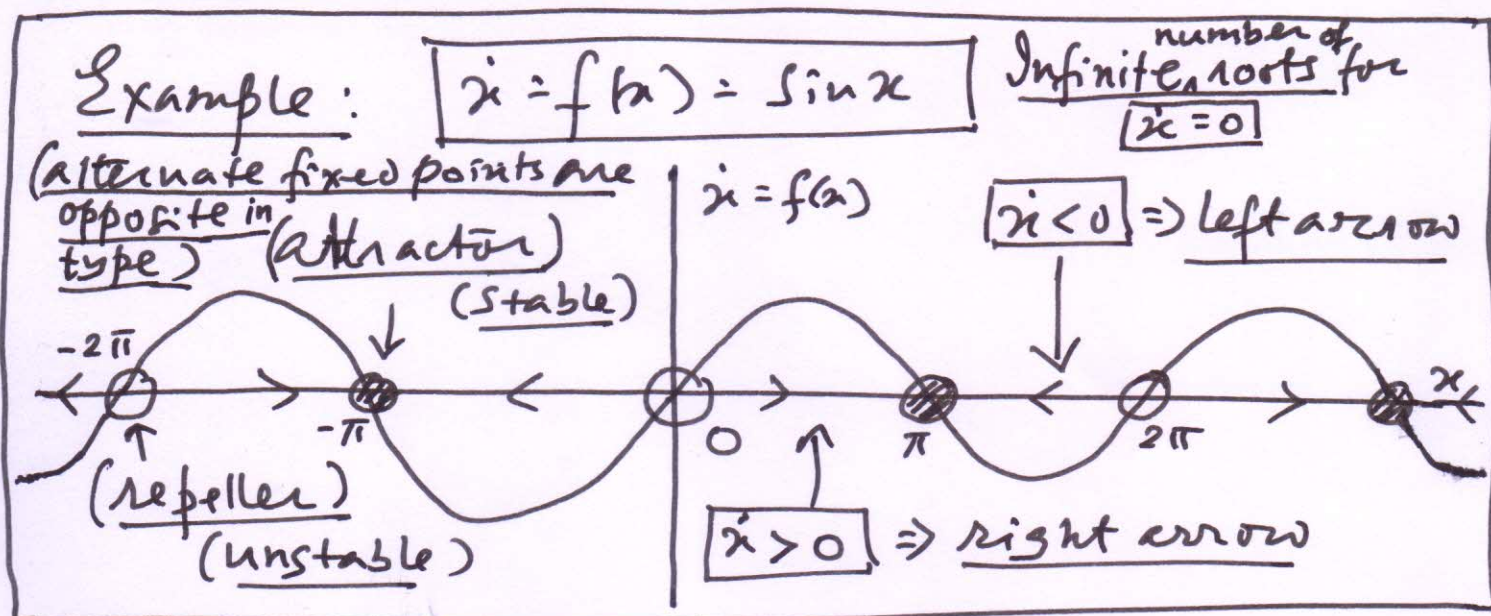 Example:
ẋ = f(x) = Sin x
Infinite number of roots for
ẋ = 0
(alternate fixed points are
opposite in
type)
(attractor)
(stable)
ẋ = f(x)
ẋ < 0 ⇒ left arrow
-2π
-π
0
π
2π
x
(repeller)
(unstable)
ẋ > 0 ⇒ right arrow